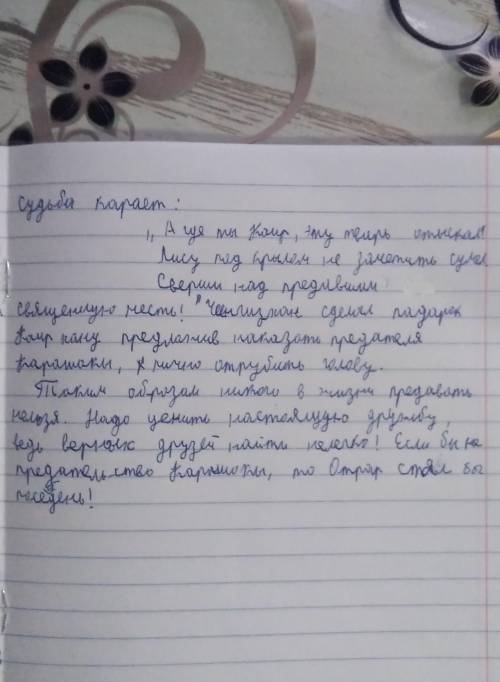 Судьба карает:
„А где ты Каир, эту тварь отыскал
Лису под крылом не заметить сумел
Сверши над предавшим
священную месть!" Чингизхан сделал подарок
Каир хану предложив наказать предателя
Карашокы, и лично отрубить голову.
Таким образом никого в жизни предавать
нельзя. Надо ценить настоящую дружбу,
ведь верных друзей найти нелегко! Если бы не
предательство Карашокы, то Отрар стоял бы
поседень!